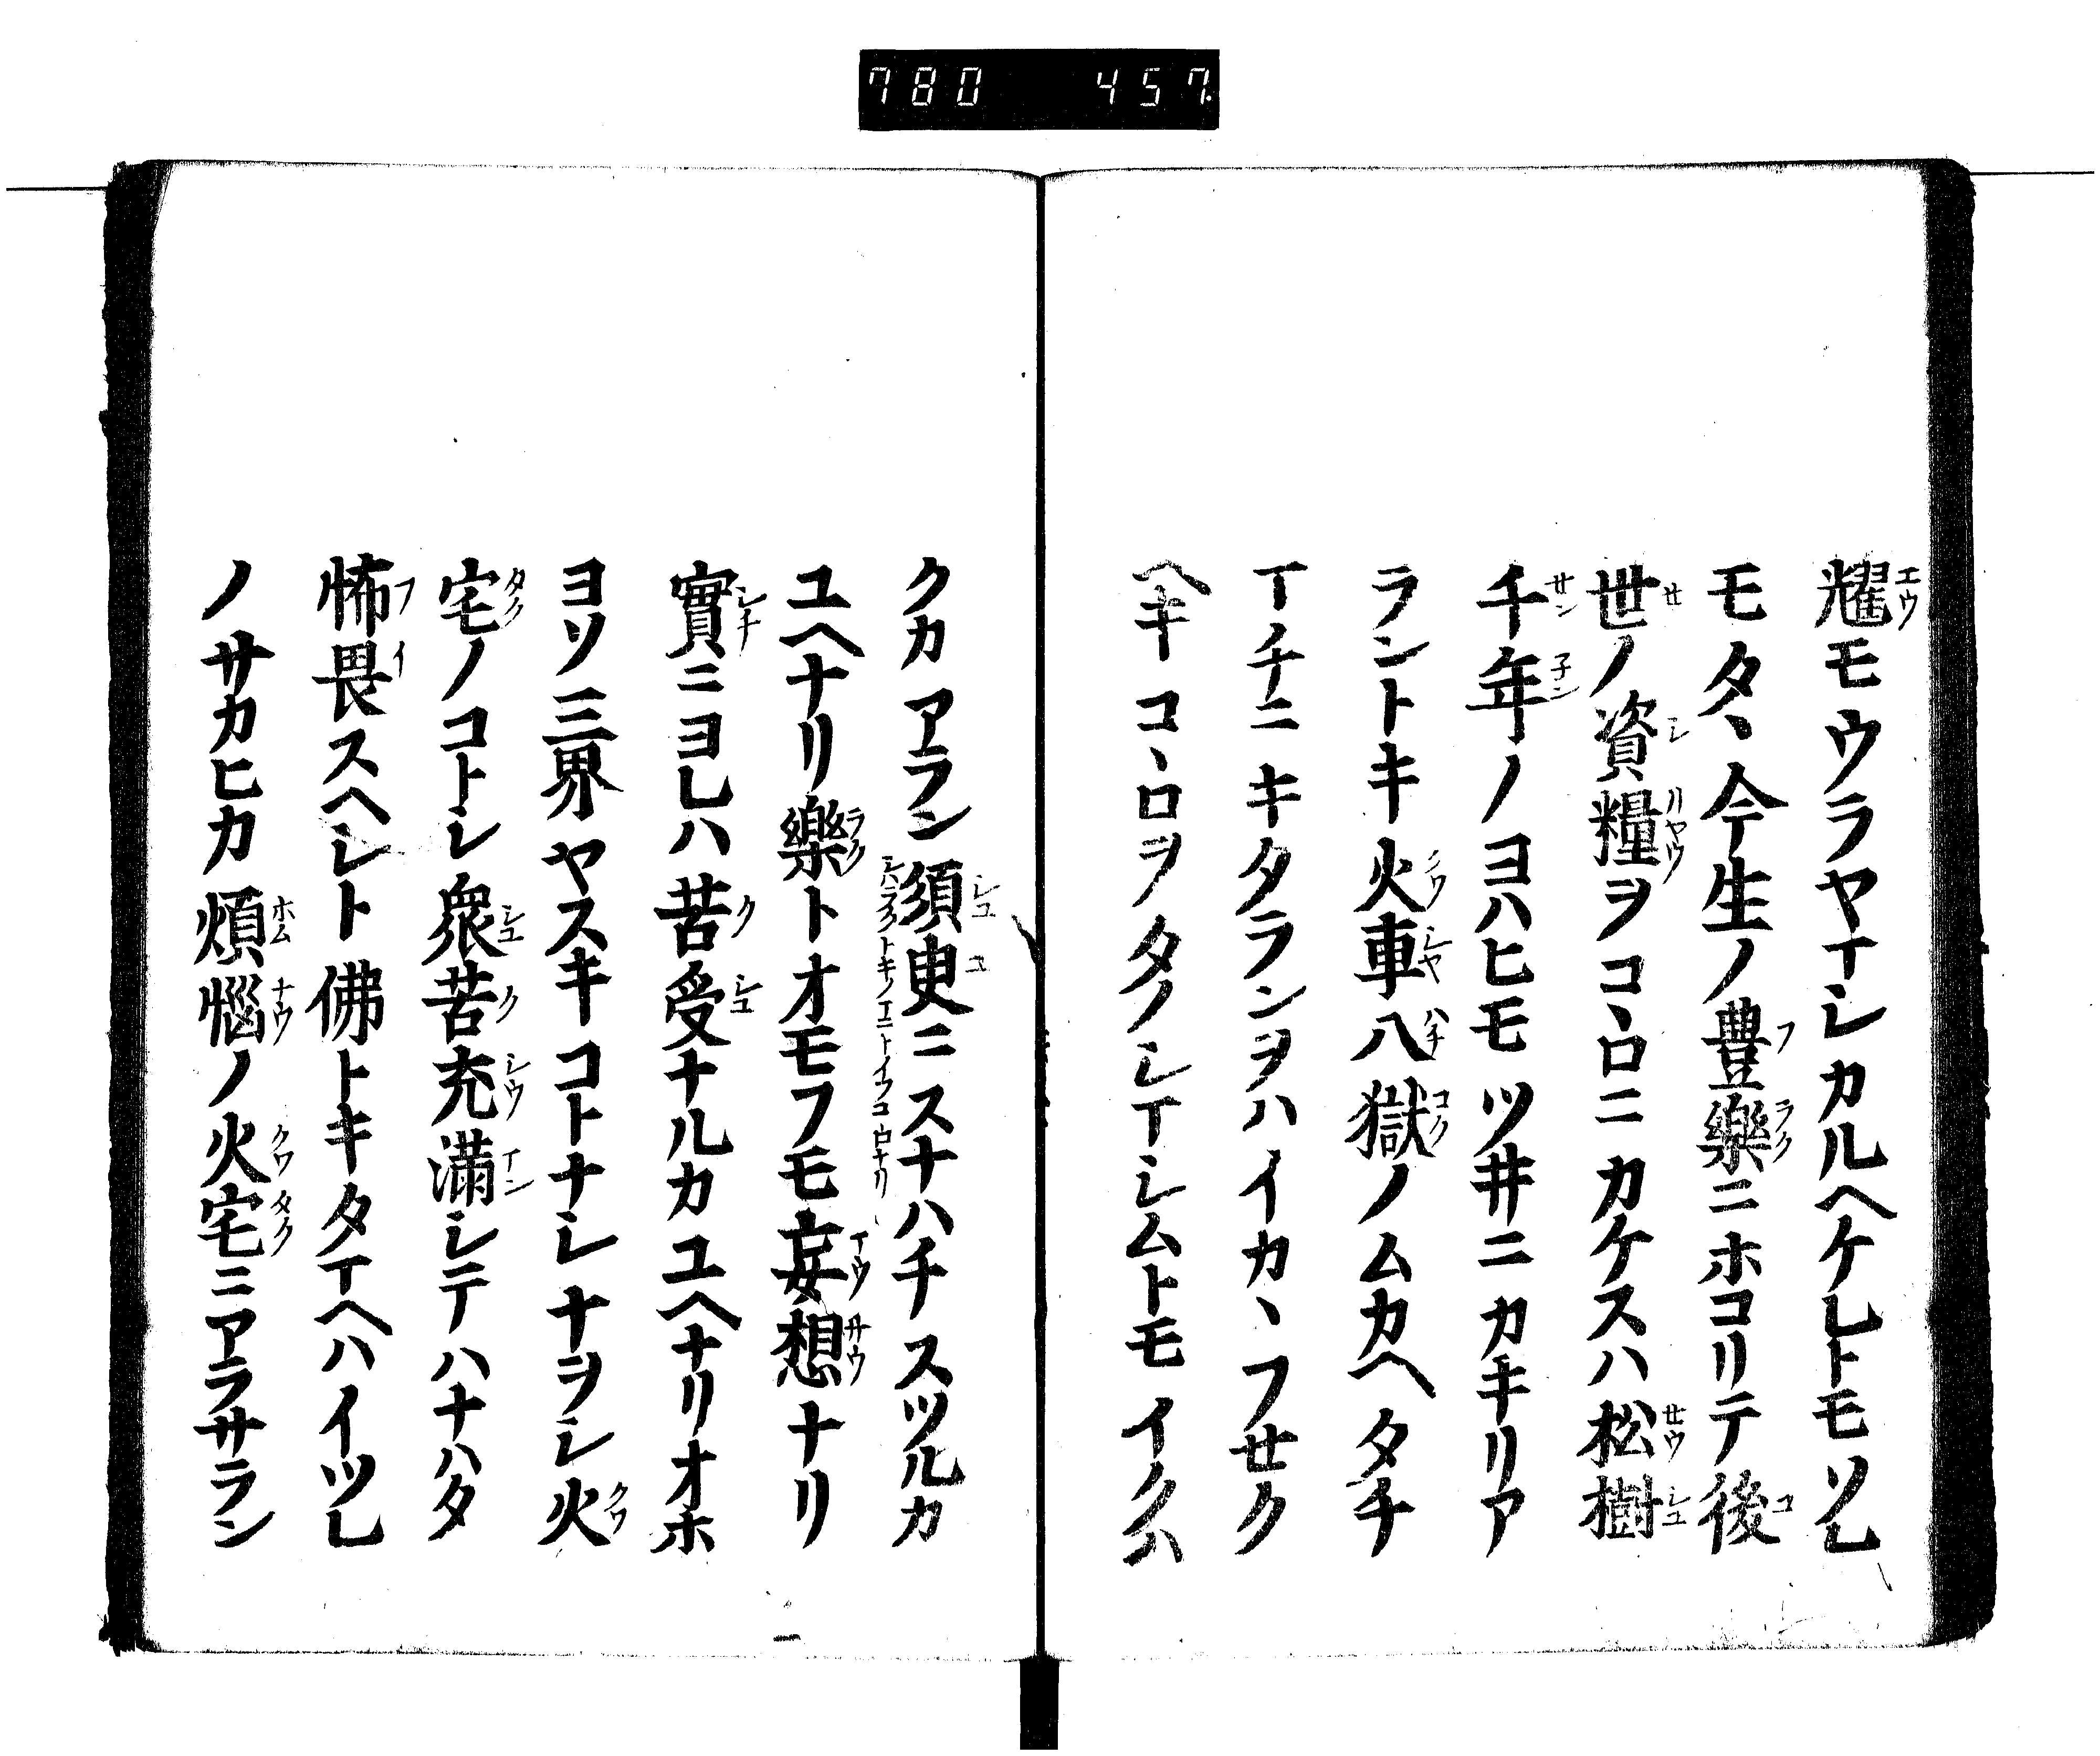 780 457
耀モウラヤマシカルヘケレトモソレ
モタヽ今生ノ豊樂ニホコリテ後
世ノ資糧ヲコヽロニカケスハ松樹
千年ノヨハヒモツヰニカキリア
ラントキ火車八獄ノムカヘタチ
マチニキタランヲハイカヽフせク
ヘキコヽロヲタノシマシムトモイクハ
クカアラン須臾ニスナハチスツルカ
ユヘナリ樂トオモフモ妄想ナリ
實ニヨレハ苦受ナルカユヘナリオホ
ヨソ三界ヤスキコトナシナヲシ火
宅ノコトシ衆苦充滿シテハナハタ
怖畏スヘシト佛トキタマヘハイツレ
ノサカヒカ煩惱ノ火宅ニアラサラン